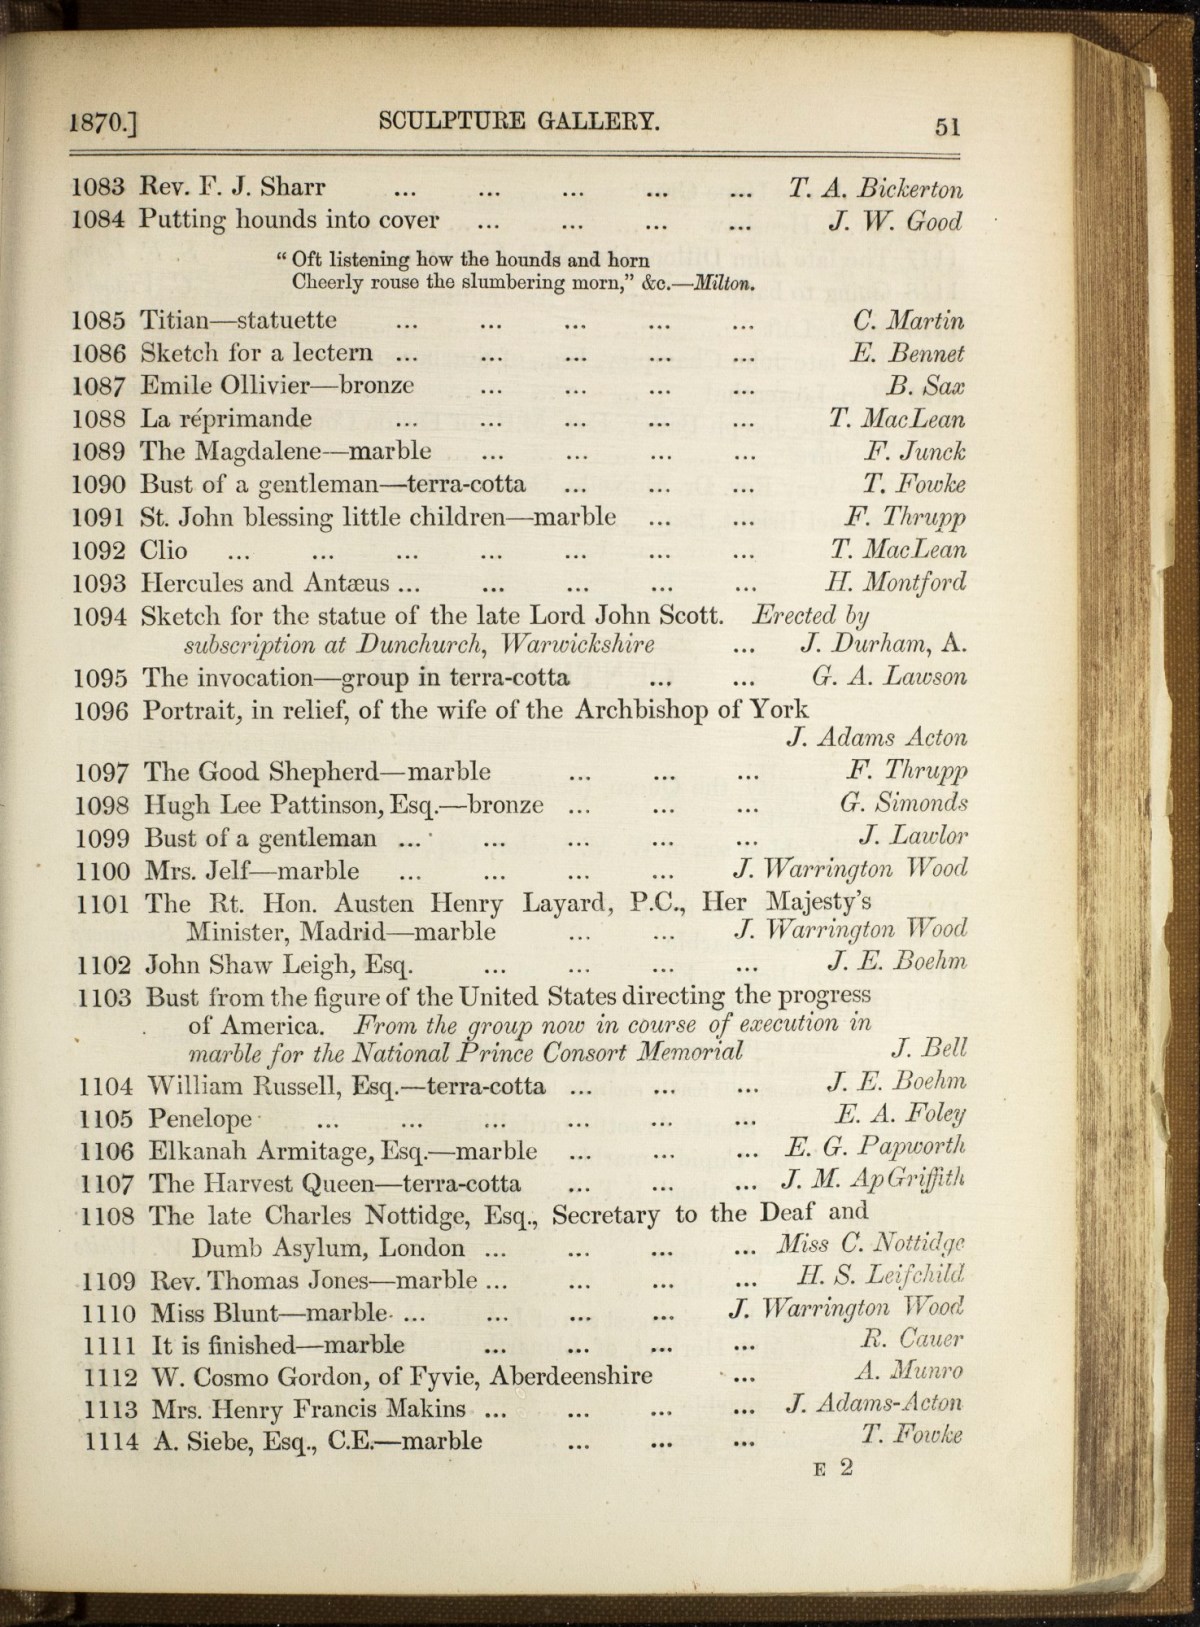 1870.] SCULPTURE GALLERY. 51
1083 Rev. F. J. Sharr ... ... ... ... ... T. A. Bickerton
1084 Putting hounds into cover ... ... ... ... J. W. Good
“ Oft listening how the hounds and horn
Cheerly rouse the slumbering morn,” &c.—Milton.
1085 Titian—statuette ... ... ... ... ... C. Martin
1086 Sketch for a lectern ... ... ... ... ... E. Bennet
1087 Emile Ollivier—bronze ... ... ... ... B. Sax
1088 La réprimande ... ... ... ... ... T. MacLean
1089 The Magdalene—marble ... ... ... ... F. Junck
1090 Bust of a gentleman—terra-cotta ... ... ... T. Fowke
1091 St. John blessing little children—marble ... ... F. Thrupp
1092 Clio ... ... ... ... ... ... ... T. MacLean
1093 Hercules and Antæus ... ... ... ... ... H. Montford
1094 Sketch for the statue of the late Lord John Scott. Erected by
subscription at Dunchurch, Warwickshire ... J. Durham, A.
1095 The invocation—group in terra-cotta ... ... G. A. Lawson
1096 Portrait, in relief, of the wife of the Archbishop of York
J. Adams Acton
1097 The Good Shepherd—marble ... ... ... F. Thrupp
1098 Hugh Lee Pattinson, Esq.—bronze ... ... ... G. Simonds
1099 Bust of a gentleman ... ... ... ... ... J. Lawlor
1100 Mrs. Jelf—marble ... ... ... ... J. Warrington Wood
1101 The Rt. Hon. Austen Henry Layard, P.C., Her Majesty’s
Minister, Madrid—marble ... ... J. Warrington Wood
1102 John Shaw Leigh, Esq. ... ... ... ... J. E. Boehm
1103 Bust from the figure of the United States directing the progress
of America. From the group now in course of execution in
marble for the National Prince Consort Memorial J. Bell
1104 William Russell, Esq.—terra-cotta ... ... ... J. E. Boehm
1105 Penelope ... ... ... ... ... ... E. A. Foley
1106 Elkanah Armitage, Esq.—marble ... ... ... E. G. Papworth
1107 The Harvest Queen—terra-cotta ... ... ... J. M. Ap Griffith
1108 The late Charles Nottidge, Esq., Secretary to the Deaf and
Dumb Asylum, London ... ... ... ... Miss C. Nottidge
1109 Rev. Thomas Jones—marble ... ... ... ... H. S. Leifchild
1110 Miss Blunt—marble ... ... ... ... J. Warrington Wood
1111 It is finished—marble ... ... ... ... R. Cauer
1112 W. Cosmo Gordon, of Fyvie, Aberdeenshire ... A. Munro
1113 Mrs. Henry Francis Makins ... ... ... ... J. Adams-Acton
1114 A. Siebe, Esq., C.E.—marble ... ... ... T. Fowke
E 2